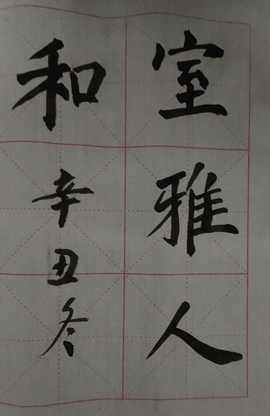 室雅人
和
辛丑冬